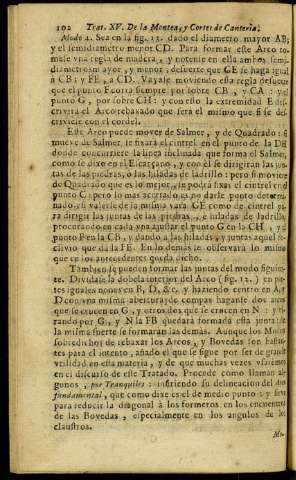 102 Trat. XV. De la Montea, y Cortes de Canteria.
Modo 2. Sea en la fig. 13. dado el diametro mayor AB;
y el semidiametro menor CD. Para formar este Arco to-
mese vna regla de madera, y notense en ella ambos semi-
diametros mayor, y menor; desuerte que GE se haga igual
à CB; y FE, à CD. Vayase moviendo esta regla desuerte
que el punto F corra siempre por sobre CB, y CA: y el
punto G, por sobre CH: y con esto la extremidad E des-
crivirà el Arco rebaxado que serà el mismo que si se des-
criviesse con el cordel.
Este Arco puede mover de Salmer, y de Quadrado: si
mueve de Salmer, se fixarà el cintrel en el punto de la DH
donde concurriere la linea inclinada que forma el Salmer,
como se dixo en el Escarçano, y con èl se dirigiran las jun-
tas de las piedras, ò las hiladas de ladrillo: pero si moviere
de Quadrado que es lo mejor, se podrà fixar el cintrel en el
punto C; pero lo mas acertado es no darle punto determi-
nado, si valerse de la misma vara GE como de cintrel pa-
ra dirigir las juntas de las piedras, è hiladas de ladrillo,
procurando en cada vna ajustar el punto G en la CH, y el
punto F en la CB, y dando a las hiladas, y juntas aquel de-
clivio que da la FE. En lo demàs se observarà lo mismo
que en los antecedentes queda dicho.
Tambien se pueden formar las juntas del modo siguien-
te. Dividase la dobela interior del Arco (fig. 12.) en par-
tes iguales nones en B, D, &c. y haziendo centro en A, y
D con vna misma abertura de compas haganse dos arcos
que se crucen en G, y otros dos que se crucen en N: y ti-
rando por G, y N la FB quedarà formada esta junta: de
la misma suerte se formaràn las demàs. Aunque los Modos
sobredichos de rebaxar los Arcos, y Bovedas son bastan-
tes para el intento, añado el que se sigue por ser de grande
vtilidad en esta materia, y de que muchas vezes vsarèmos
en el discurso de este Tratado. Procede como llaman al-
gunos, por Tranquiles: infiriendo su delineacion del Arco
fundamental, que como dixe es el de medio punto: y sirve
para reducir la diagonal à los formeros en los encuentros
de las Bovedas, especialmente en los angulos de los
claustros.
Mo-